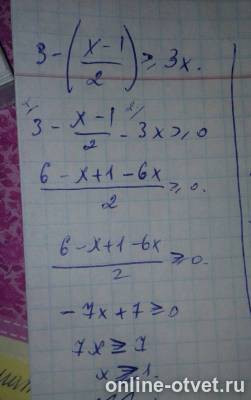 3 - (x-1/2) ≥ 3x.
2/ 3 - x-1/2 2/ - 3x ≥ 0
6-x+1-6x/2 ≥ 0.
6-x+1-6x/2 ≥ 0.
-7x+7 ≥ 0
7x ≥ 7
x ≥ 1.
online-otvet.ru